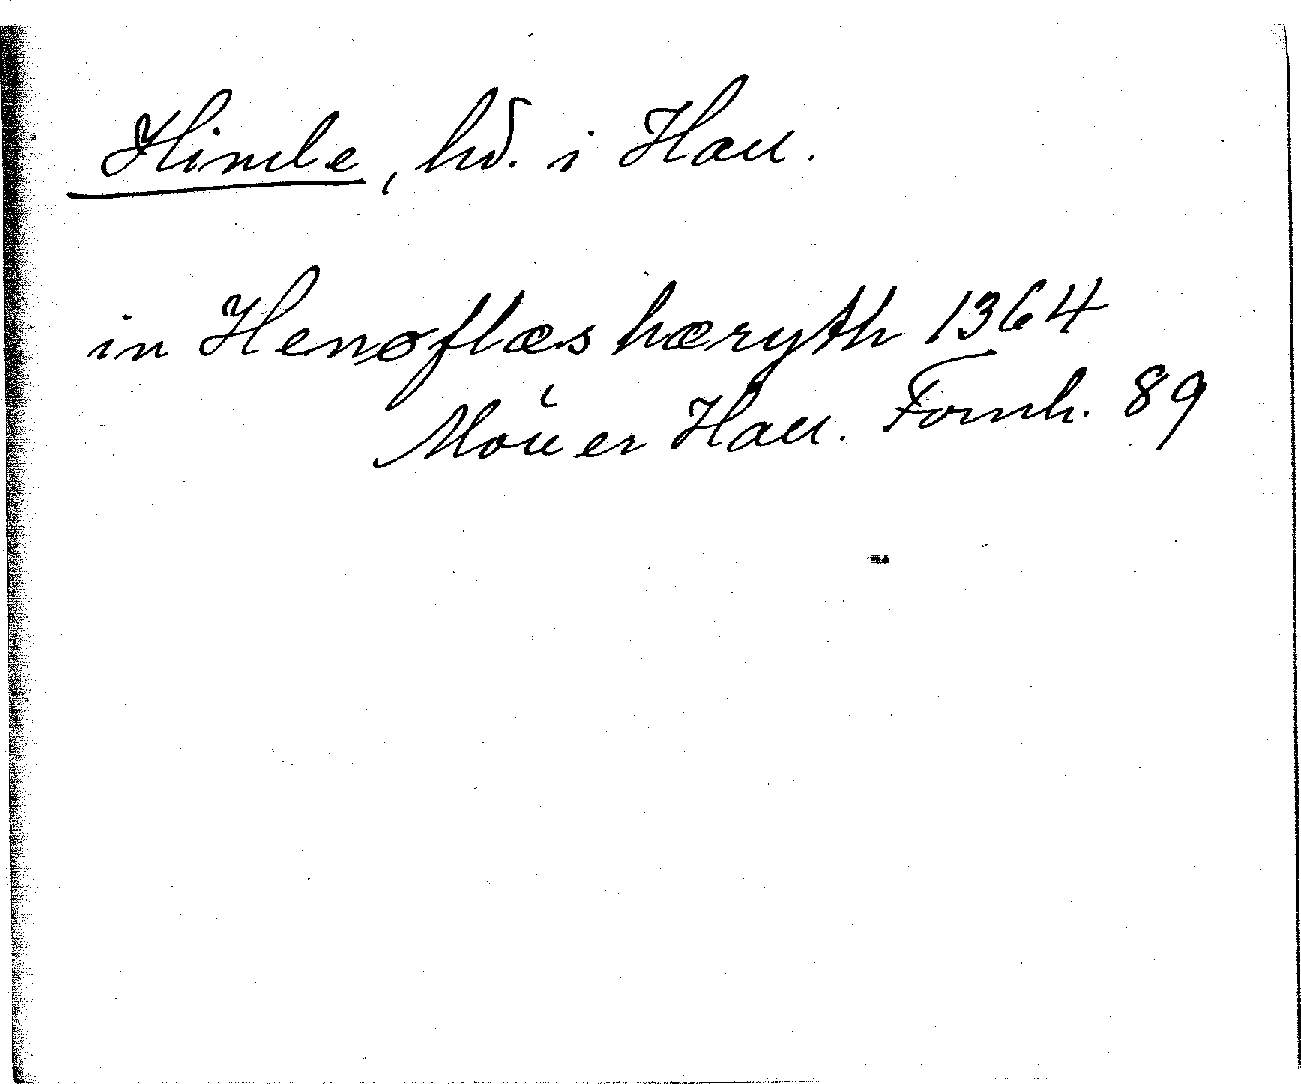 Himle, hd. i Hall.
in Henøflæs hæryth 1364
Möller Hall. Fornh. 89